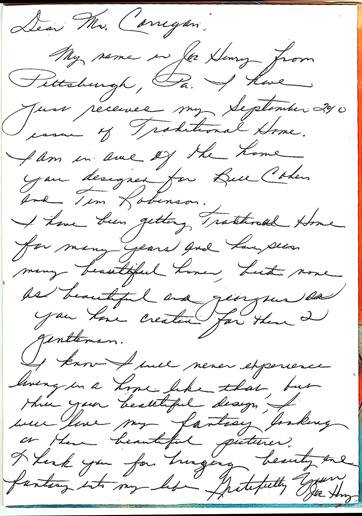 Dear Mr. Corrigan:
My name is Joe Henry from
Pittsburgh, Pa. I have
just received my September 2010
issue of Traditional Home.
I am in awe of the home
you designed for Bill Cohen
and Tim Robinson.
I have been getting Traditional Home
for many years and have seen
many beautiful homes, but none
as beautiful and gorgeous as
you have created for these 2
gentlemen.
I know I will never experience
living in a home like that, but
thru your beautiful design, I
will live my fantasy looking
at these beautiful pictures.
Thank you for bringing beauty and
fantasy into my life. Gratefully Yours
Joe Henry